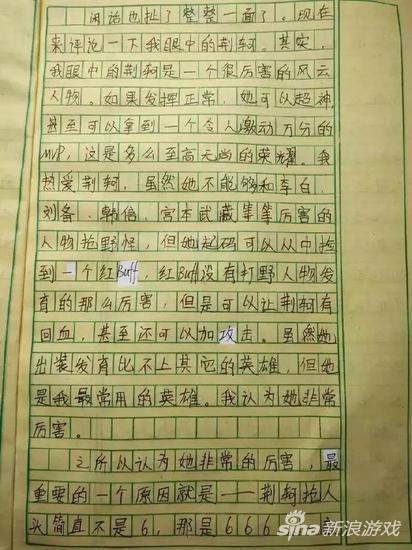 闲话也扯了整整一面了。现在
来评论一下我眼中的荆轲。其实,
我眼中的荆轲是一个很厉害的风云
人物。如果发挥正常,她可以超神,
甚至可以拿到一个令人激动万分的
MVP,这是多么至高无尚的荣耀。我
热爱荆轲,虽然她不能够和李白、
刘备、韩信、宫本武藏等等厉害的
人物抢野怪,但她起码可以从中捡
到一个红Buff,红Buff没有打野人物发
育的那么厉害,但是可以让荆轲有
回血,甚至还可以加攻击。虽然她
出装发育比不上其它的英雄,但她
是我最常用的英雄。我认为她非常
厉害。
之所以认为她非常的厉害,最
重要的一个原因就是——荆轲抢人
头简直不是6,那是666
sina新浪游戏